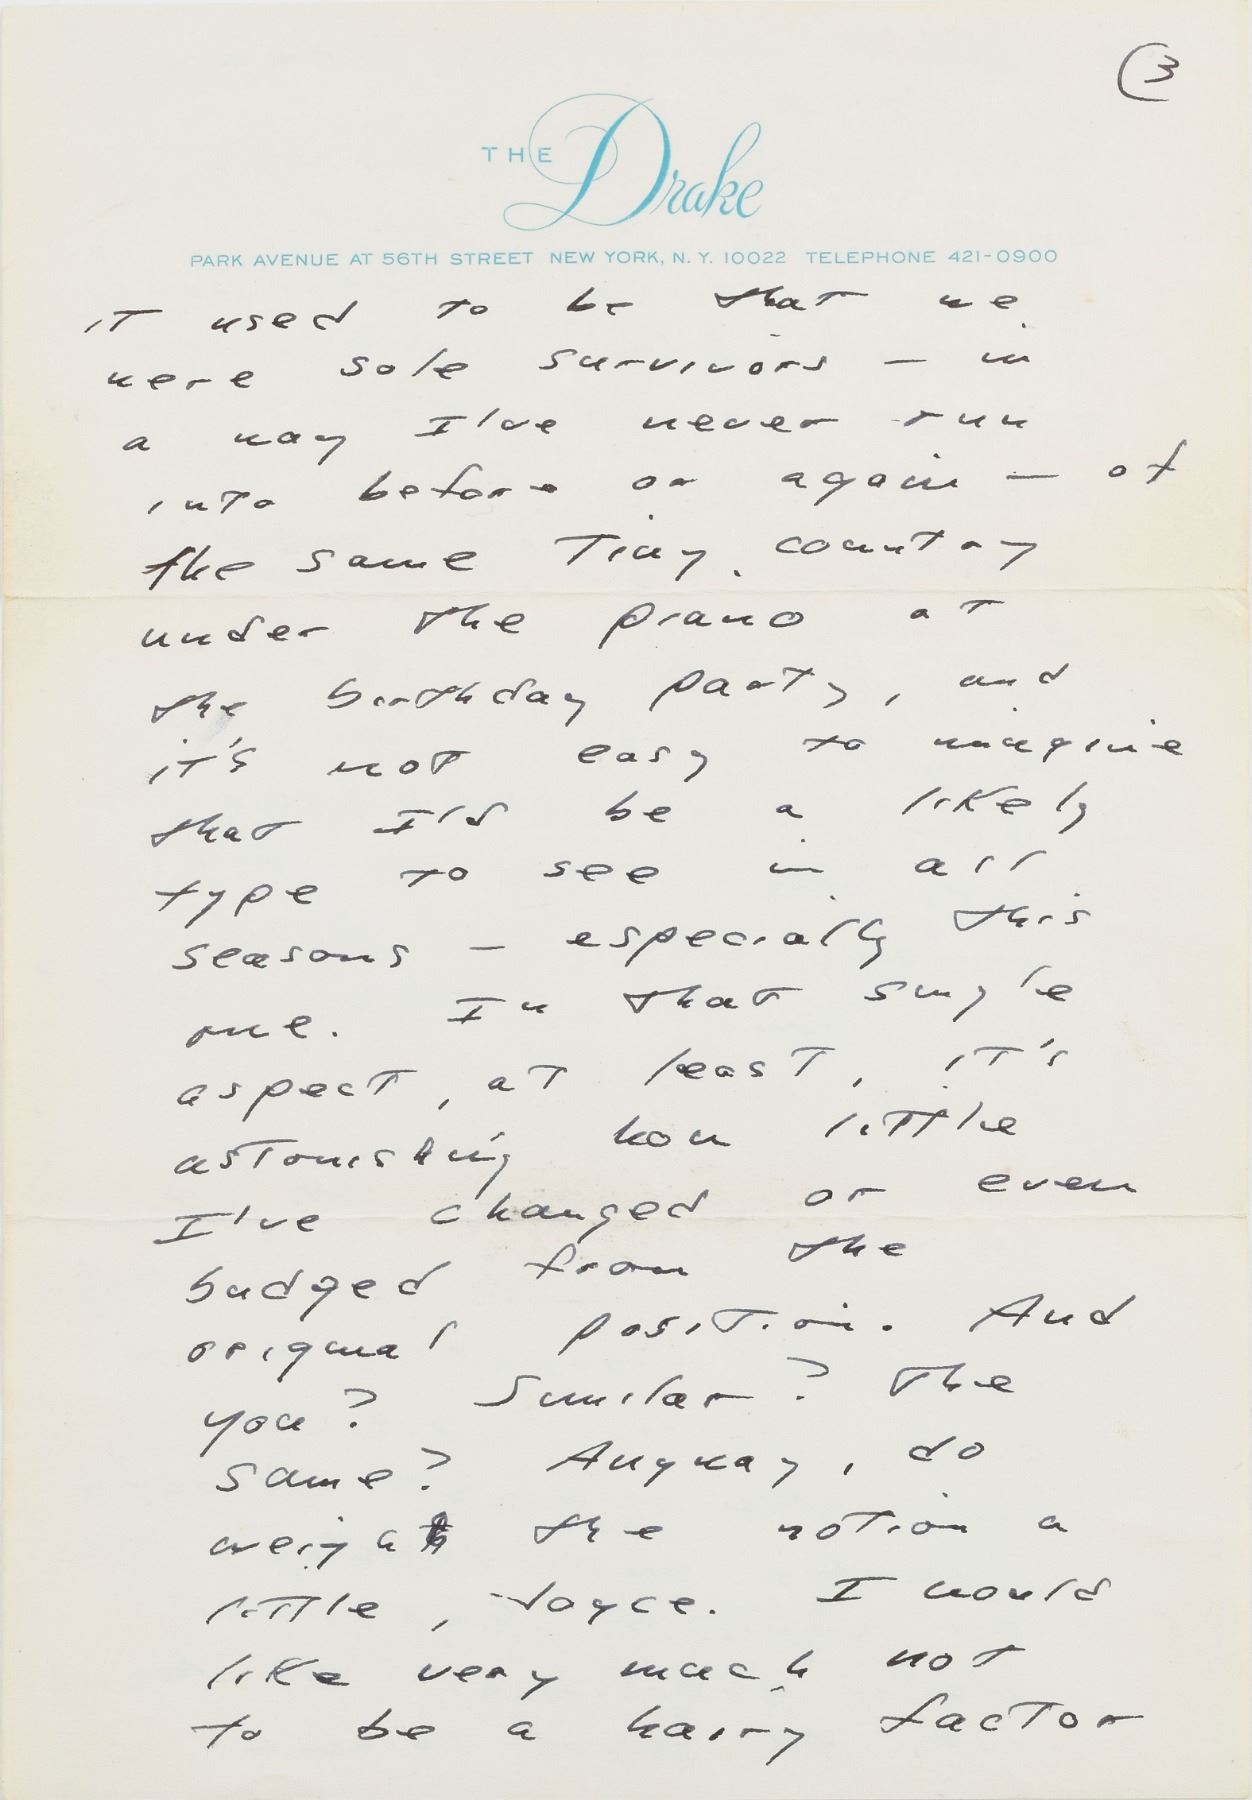 (3
THE Drake
PARK AVENUE AT 56TH STREET NEW YORK, N. Y. 10022 TELEPHONE 421-0900
it used to be that we
were sole survivors — in
a way I've never run
into before or again — of
the same tiny country
under the piano at
the birthday party, and
it's not easy to imagine
that I'd be a likely
type to see in all
seasons — especially this
one. In that single
aspect, at least, it's
astonishing how little
I've changed or even
budged from the
original position. And
you? Similar? The
same? Anyway, do
weigh the notion a
little, Joyce. I would
like very much not
to be a hairy factor